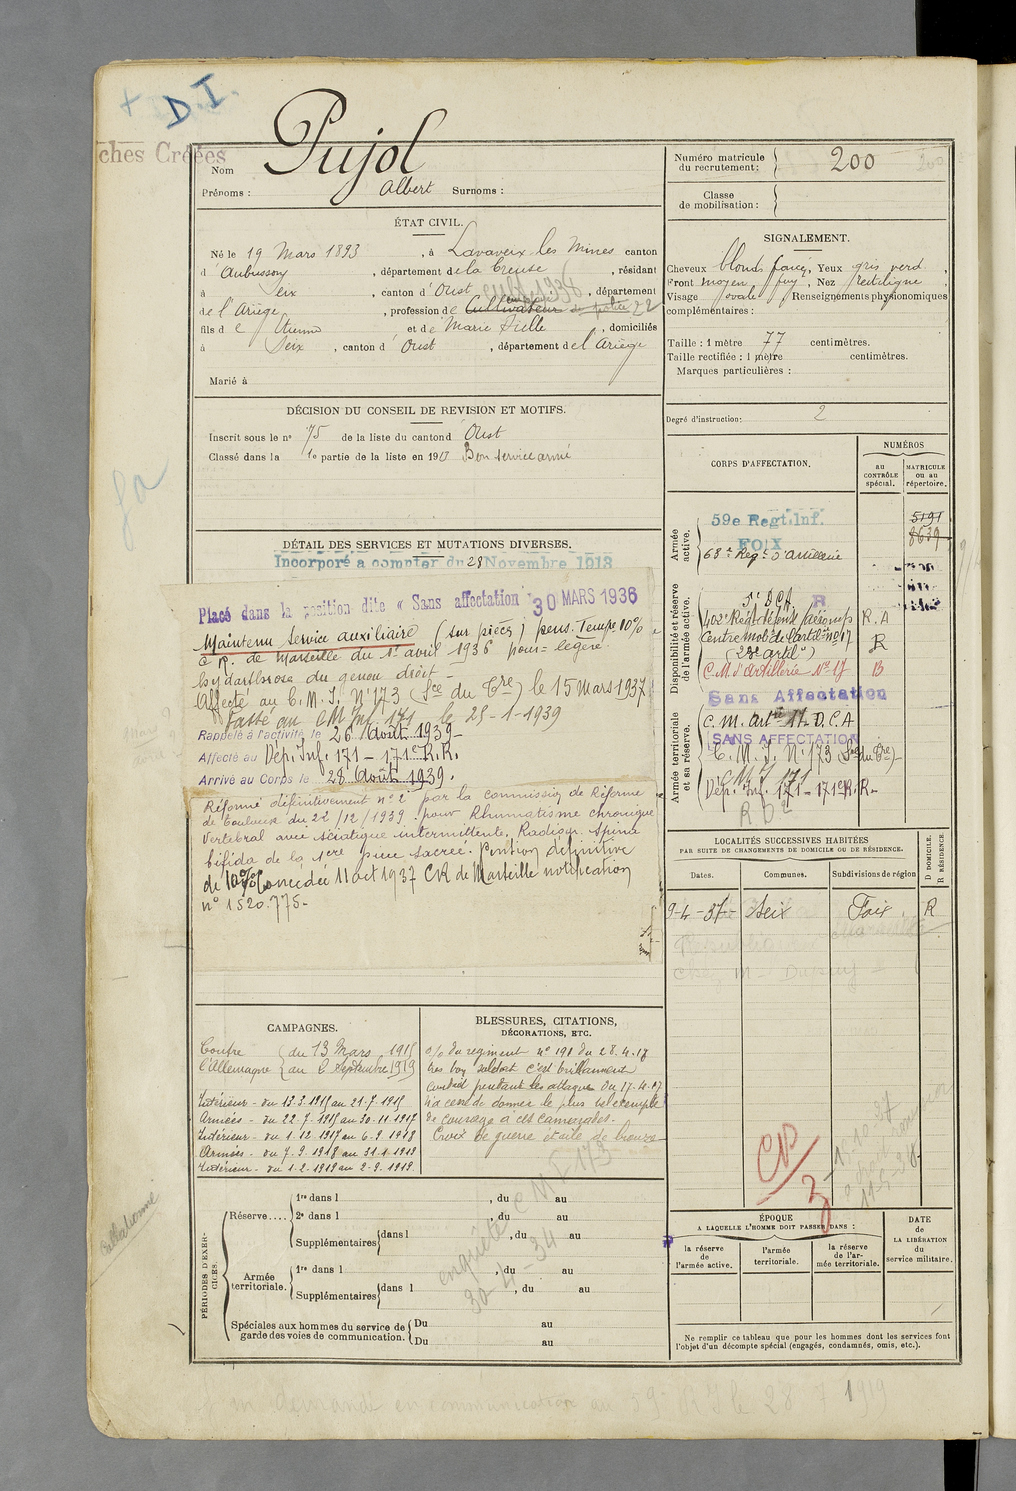 + D.I.
ches Créées
Nom Pujol
Prénoms : Albert Surnoms :
ÉTAT CIVIL.
Né le 19 Mars 1893, à Lavaveix les Mines canton
d'Aubusson, département de la Creuse, résidant
à Seix, canton d'Oust, département
de l'Ariège, profession de Cultivateur
cult 1938
22
fils de Etienne et de Marie, domiciliés
à Seix, canton d'Oust, département de l'Ariège
Marié à
DÉCISION DU CONSEIL DE REVISION ET MOTIFS.
Inscrit sous le n° 75 de la liste du canton d Oust
Classé dans la 1e partie de la liste en 1913 Bon service armé
DÉTAIL DES SERVICES ET MUTATIONS DIVERSES.
Incorporé à compter du 28 Novembre 1913
Placé dans la position dite « Sans affectation » 30 MARS 1936
Maintenu Service auxiliaire (sur pièces) pens. Temp. 10%
C.R. de Marseille du 1er avril 1936 pour = légère
hydarthrose du genou droit -
Affecté au C.M.I. N° 173 (Sce du Tre) le 15 Mars 1937
Passé au CM Inf. 171 le 25-1-1939
Rappelé à l'activité le 26 Août 1939-
Affecté au Dép. Inf. 171 - 171e R.R.
Arrivé au Corps le 28 Août 1939.
Réformé définitivement n° 2 par la commission de Réforme
de Toulouse du 22/12/1939 pour Rhumatisme chronique
Vertebral avec sciatique intermittente. Radiogr. Spina
bifida de la 1ere pièce sacrée. Pension définitive
de 10% Concédée 11 oct 1937 CR de Marseille notification
n° 1520.775-
CAMPAGNES.
Contre { du 13 Mars 1915
l'Allemagne { au 2 Septembre 1919
Intérieur - du 13.3.1915 au 21.7.1915
Armées - du 22.7.1915 au 30.11.1917
Intérieur - du 1.12.1917 au 6.9.1918
Armées - du 7.9.1918 au 31.1.1919
Intérieur - du 1.2.1919 au 2.9.1919
BLESSURES, CITATIONS,
DÉCORATIONS, ETC.
o/ du regiment n° 191 du 28.4.17
très bon soldat c'est brillamment
conduit pendant les attaques du 17.4.17
n'a cessé de donner le plus bel exemple
de courage à ses camarades.
Croix de guerre étoile de bronze
PÉRIODES D'EXERCICES.
Réserve.... 1re dans l , du au
2e dans l , du au
Supplémentaires dans l , du au
Armée territoriale. 1re dans l , du au
Supplémentaires dans l , du au
Spéciales aux hommes du service de garde des voies de communication. Du au
Du au
enquête CMI 173
30-4-34
Numéro matricule du recrutement : 200
Classe de mobilisation :
SIGNALEMENT.
Cheveux blonds foncé, Yeux gris verd
Front moyen fuy, Nez rectiligne
Visage ovale Renseignements physionomiques
complémentaires :
Taille : 1 mètre 77 centimètres.
Taille rectifiée : 1 mètre centimètres.
Marques particulières :
Degré d'instruction: 2
CORPS D'AFFECTATION.
NUMÉROS
au CONTRÔLE spécial.
MATRICULE ou au répertoire.
Armée active.
59e Regt. Inf. 5191
FOIX 8639
68e Regt d'artillerie
Disponibilité et réserve de l'armée active.
D.C.A. R
402e Régt défense aériens R.A
Centre mob. de l'artie n° 17 R
(23e artie)
C.M. d'Artillerie N° 17 B
Sans Affectation
Armée territoriale et sa réserve.
C.m. artie 17 D.C.A
SANS AFFECTATION
C.M.I. N° 173 (Sce du Tre)
CMI 171
Dép. Inf. 171 - 171e R.R.
R D 2
LOCALITÉS SUCCESSIVES HABITÉES
PAR SUITE DE CHANGEMENTS DE DOMICILE OU DE RÉSIDENCE.
Dates. Communes. Subdivisions de région
D DOMICILE. R RÉSIDENCE.
9-4-37- Seix Foix. R
CD/3
15.10.37
ÉPOQUE
A LAQUELLE L'HOMME DOIT PASSER DANS :
la réserve de l'armée active.
l'armée territoriale.
la réserve de l'armée territoriale.
DATE de LA LIBÉRATION du service militaire.
Ne remplir ce tableau que pour les hommes dont les services font
l'objet d'un décompte spécial (engagés, condamnés, omis, etc.).
demandé en communication au 59e RI le 28 7 1919